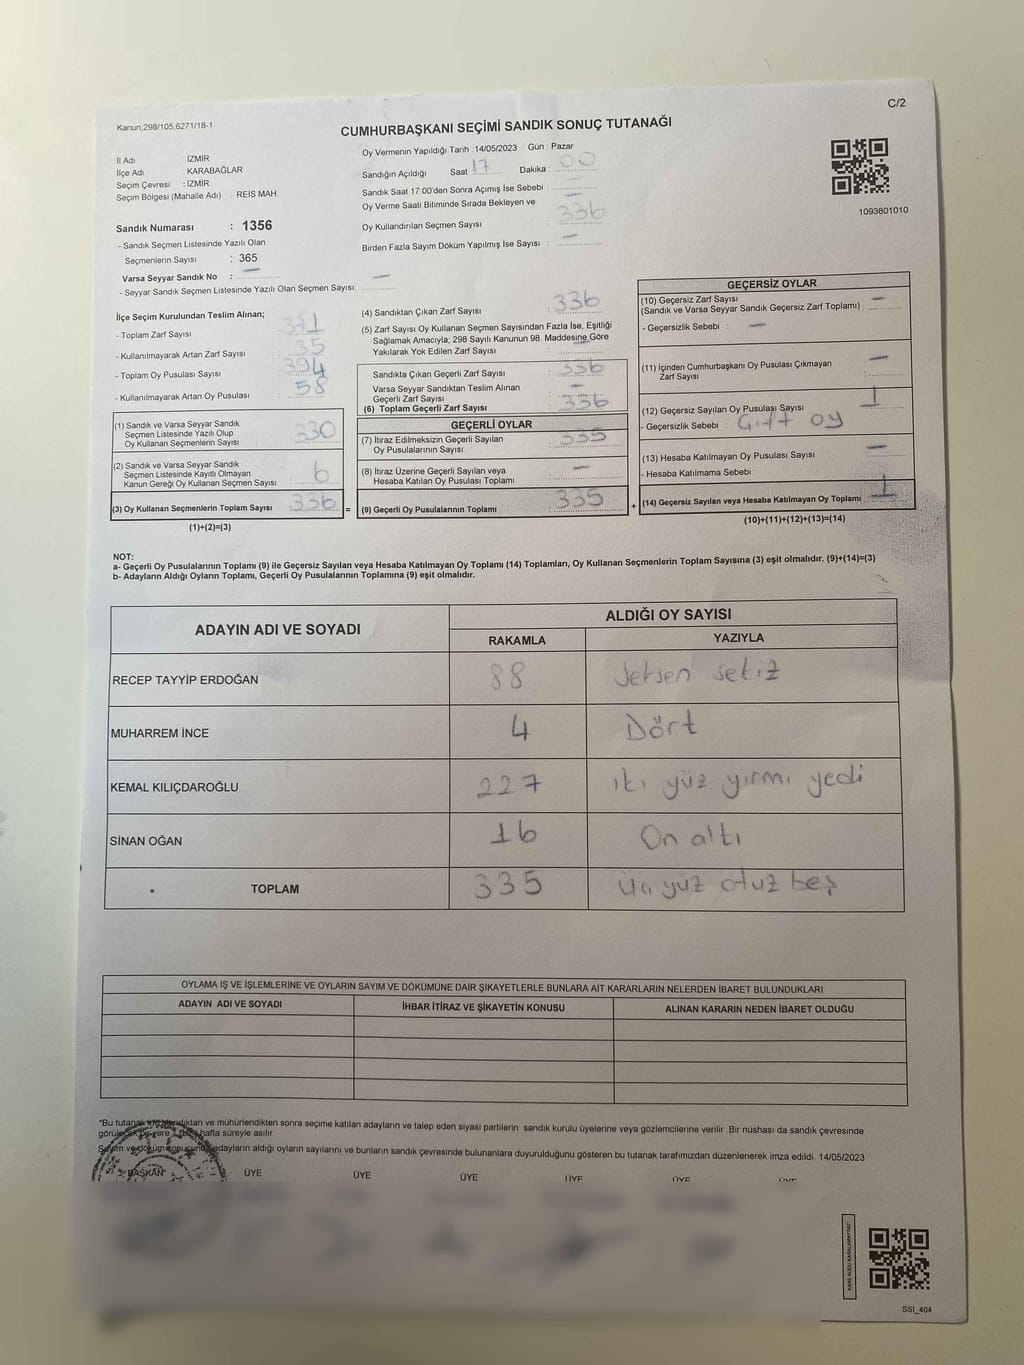 C/2
Kanun,298/105,6271/18-1
CUMHURBAŞKANI SEÇİMİ SANDIK SONUÇ TUTANAĞI
İl Adı : İZMİR
İlçe Adı : KARABAĞLAR
Seçim Çevresi : İZMİR
Seçim Bölgesi (Mahalle Adı) : REİS MAH.
Sandık Numarası : 1356
- Sandık Seçmen Listesinde Yazılı Olan
Seçmenlerin Sayısı : 365
Varsa Seyyar Sandık No : —
- Seyyar Sandık Seçmen Listesinde Yazılı Olan Seçmen Sayısı: —
Oy Vermenin Yapıldığı Tarih : 14/05/2023 Gün : Pazar
Sandığın Açıldığı Saat 17 Dakika : 00
Sandık Saat 17.00'den Sonra Açımış İse Sebebi : —
Oy Verme Saati Bitiminde Sırada Bekleyen ve
Oy Kullandırılan Seçmen Sayısı : 336
Birden Fazla Sayım Döküm Yapılmış İse Sayısı : —
1093801010
İlçe Seçim Kurulundan Teslim Alınan;
- Toplam Zarf Sayısı : 371
- Kullanılmayarak Artan Zarf Sayısı : 35
- Toplam Oy Pusulası Sayısı : 394
- Kullanılmayarak Artan Oy Pusulası : 58
(1) Sandık ve Varsa Seyyar Sandık
Seçmen Listesinde Yazılı Olup
Oy Kullanan Seçmenlerin Sayısı : 330
(2) Sandık ve Varsa Seyyar Sandık
Seçmen Listesinde Kayıtlı Olmayan
Kanun Gereği Oy Kullanan Seçmen Sayısı : 6
(3) Oy Kullanan Seçmenlerin Toplam Sayısı : 336 =
(1)+(2)=(3)
(4) Sandıktan Çıkan Zarf Sayısı : 336
(5) Zarf Sayısı Oy Kullanan Seçmen Sayısından Fazla İse, Eşitliği
Sağlamak Amacıyla; 298 Sayılı Kanunun 98. Maddesine Göre
Yakılarak Yok Edilen Zarf Sayısı : —
Sandıkta Çıkan Geçerli Zarf Sayısı : 336
Varsa Seyyar Sandıktan Teslim Alınan
Geçerli Zarf Sayısı : —
(6) Toplam Geçerli Zarf Sayısı : 336
GEÇERLİ OYLAR
(7) İtiraz Edilmeksizin Geçerli Sayılan
Oy Pusulalarının Sayısı : 335
(8) İtiraz Üzerine Geçerli Sayılan veya
Hesaba Katılan Oy Pusulası Toplamı : —
(9) Geçerli Oy Pusulalarının Toplamı : 335 +
GEÇERSİZ OYLAR
(10) Geçersiz Zarf Sayısı
(Sandık ve Varsa Seyyar Sandık Geçersiz Zarf Toplamı) : —
- Geçersizlik Sebebi : —
(11) İçinden Cumhurbaşkanı Oy Pusulası Çıkmayan
Zarf Sayısı : —
(12) Geçersiz Sayılan Oy Pusulası Sayısı : 1
- Geçersizlik Sebebi : Çift oy
(13) Hesaba Katılmayan Oy Pusulası Sayısı : —
- Hesaba Katılmama Sebebi :
(14) Geçersiz Sayılan veya Hesaba Katılmayan Oy Toplamı : 1
(10)+(11)+(12)+(13)=(14)
NOT:
a- Geçerli Oy Pusulalarının Toplamı (9) ile Geçersiz Sayılan veya Hesaba Katılmayan Oy Toplamı (14) Toplamları, Oy Kullanan Seçmenlerin Toplam Sayısına (3) eşit olmalıdır. (9)+(14)=(3)
b- Adayların Aldığı Oyların Toplamı, Geçerli Oy Pusulalarının Toplamına (9) eşit olmalıdır.
ADAYIN ADI VE SOYADI
ALDIĞI OY SAYISI
RAKAMLA YAZIYLA
RECEP TAYYİP ERDOĞAN 88 Seksen sekiz
MUHARREM İNCE 4 Dört
KEMAL KILIÇDAROĞLU 227 iki yüz yirmi yedi
SİNAN OĞAN 16 On altı
TOPLAM 335 Üç yüz otuz beş
OYLAMA İŞ VE İŞLEMLERİNE VE OYLARIN SAYIM VE DÖKÜMÜNE DAİR ŞİKAYETLERLE BUNLARA AİT KARARLARIN NELERDEN İBARET BULUNDUKLARI
ADAYIN ADI VE SOYADI İHBAR İTİRAZ VE ŞİKAYETİN KONUSU ALINAN KARARIN NEDEN İBARET OLDUĞU
*Bu tutanak ve mühürlendikten sonra seçime katılan adayların ve talep eden siyasi partilerin sandık kurulu üyelerine veya gözlemcilerine verilir. Bir nüshası da sandık çevresinde
yere 1 hafta süreyle asılır.
Sayım ve döküm sonucunda adayların aldığı oyların sayılarını ve bunların sandık çevresinde bulunanlara duyurulduğunu gösteren bu tutanak tarafımızdan düzenlenerek imza edildi. 14/05/2023
BAŞKAN ÜYE ÜYE ÜYE ÜYE ÜYE ÜYE
SSI_404